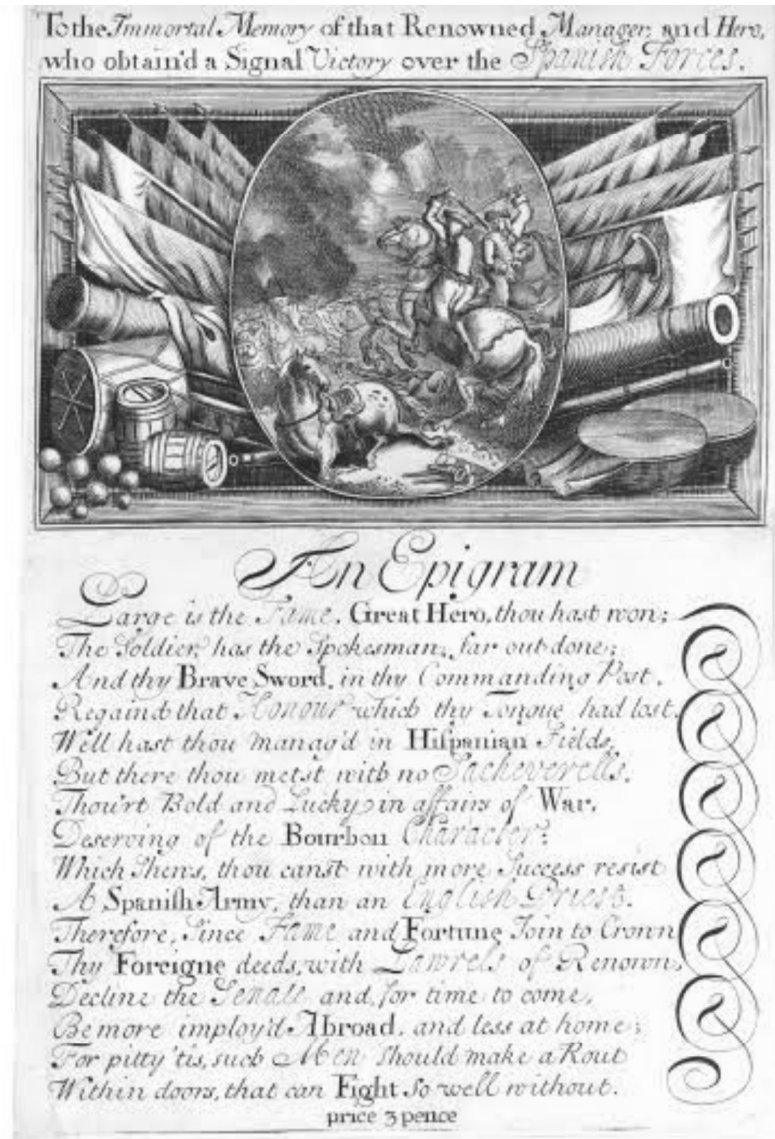 To the Immortal Memory of that Renowned Manager, and Hero,
who obtain'd a Signal Victory over the Spanish Forces.
An Epigram
Large is the Fame, Great Hero, thou hast won;
The Soldier, has the Spokesman, far out done;
And thy Brave Sword, in thy Commanding Post,
Regaind that Honour which thy Tongue had lost.
Well hast thou manag'd in Hiſpanian Fields,
But there thou metst with no Sacheverells.
Thou'rt Bold and Lucky in affairs of War,
Deserving of the Bourbon Character:
Which Shews, thou canst with more Success resist
A Spaniſh Army, than an English Priest.
Therefore, Since Fame and Fortune Join to Crown
Thy Foreigne deeds, with Lawrels of Renown,
Decline the Senate and, for time to come,
Be more imploy'd Abroad, and less at home;
For pitty 'tis, such Men should make a Rout
Within doors, that can Fight so well without.
price 3 pence